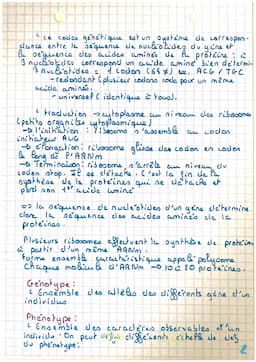 ↳ ce codes génétique est un système de correspon-
dance entre la séquence de nucléotides du gène et
la séquence des acides aminés de la protéine : à
3 nucléotides correspond un acide aminé bien déterminé
3 nucléotides = 1 codon (64) ex. ACG / TGC
- redondant (plusieurs codons code pour un même
acide aminé.
- universel (identique à tous).
↳ traduction → cytoplasme au niveau des ribosomes
(petits organites cytoplasmique)
→ l'initiation : ribosome s'assemble au codon
initiateur AUG
→ élongation : ribosome glisse des codon en codon
le long de l'ARNm
→ Terminaison : ribosome s'arrête au niveau du
codon stop. Il se détache. C'est la fin de la
synthèse de la protéines qui se détache et
perd son 1er acide aminé
=> la séquence de nucléotides d'un gène détermine
donc la séquence des acides aminés de la
protéines.
Plusieurs ribosomes effectuent la synthèse de protéines
à partir d'un même ARNm.
forme ensemble caractéristique appelé polysome
Chaque molécule d'ARNm → 10 à 20 protéines.
Génotype :
↳ Ensemble des allèles des différents gène d'un
individus
Phénotype :
↳ Ensemble des caractères observables d'un
individu. On peut différents échelle de
du phénotype.
2